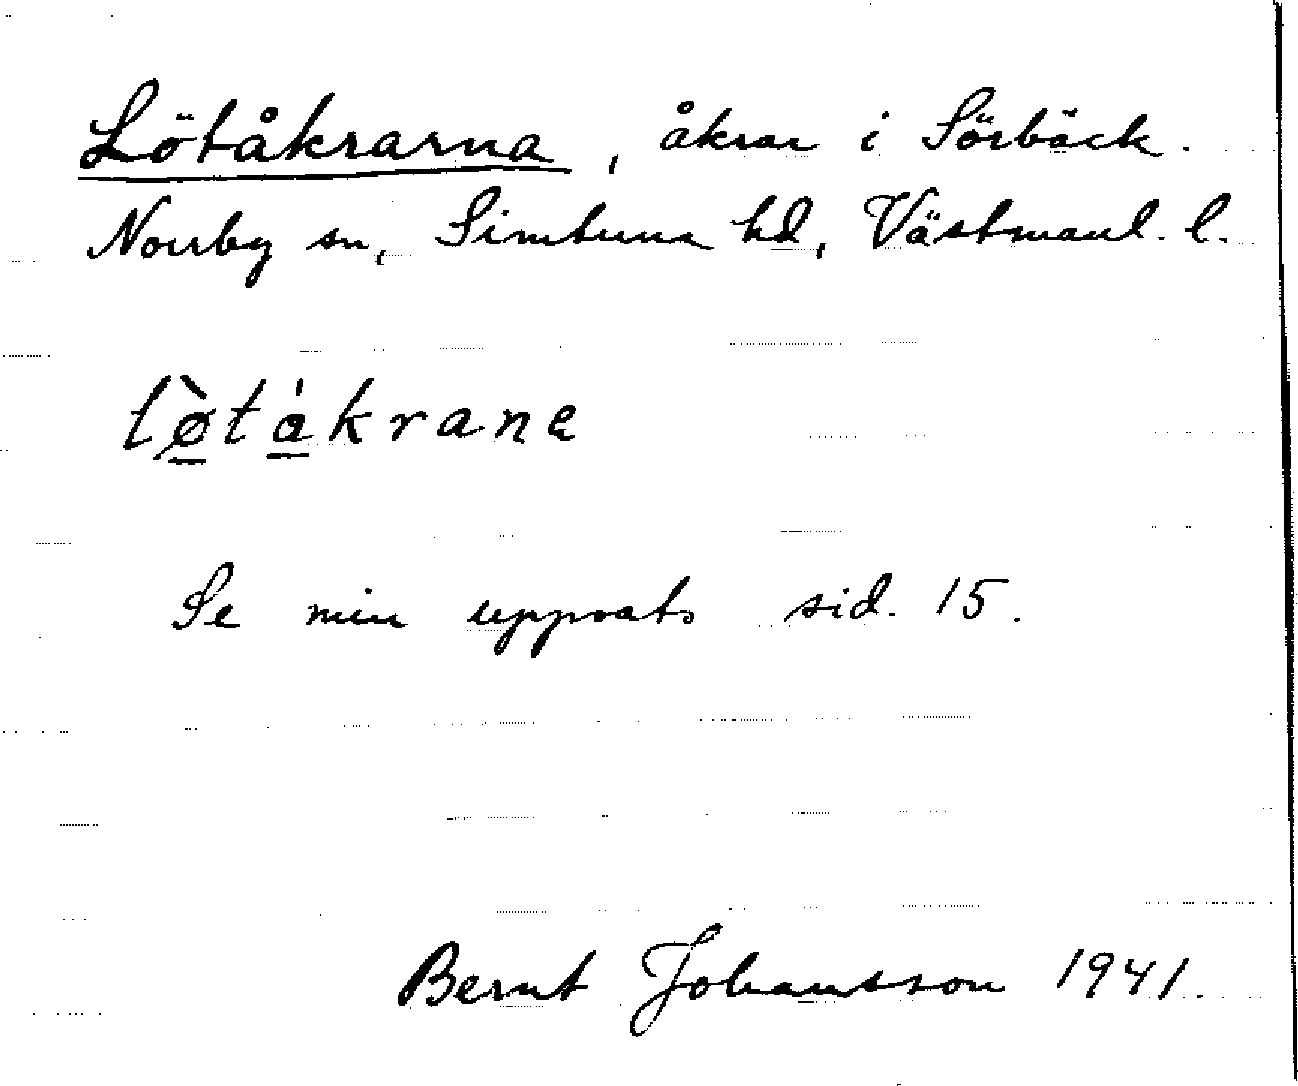 Lötåkrarna, åkrar i Sörbäck.
Norrby sn, Simtuna hd, Västmanl. l.
lø̀tåkrane
Se min uppsats sid. 15.
Bernt Johansson 1941.